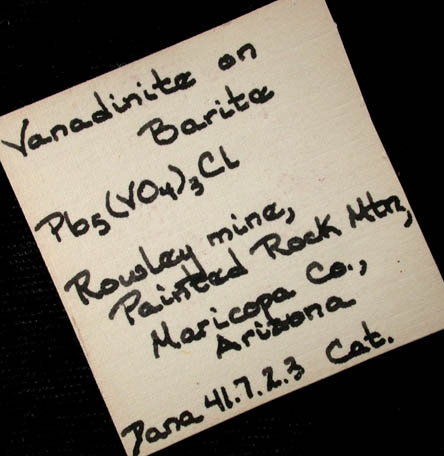 Vanadinite on
Barite
Pb₅(VO₄)₃Cl
Rowley mine,
Painted Rock Mtns,
Maricopa Co.,
Arizona
Dana 41.7.2.3 Cat.